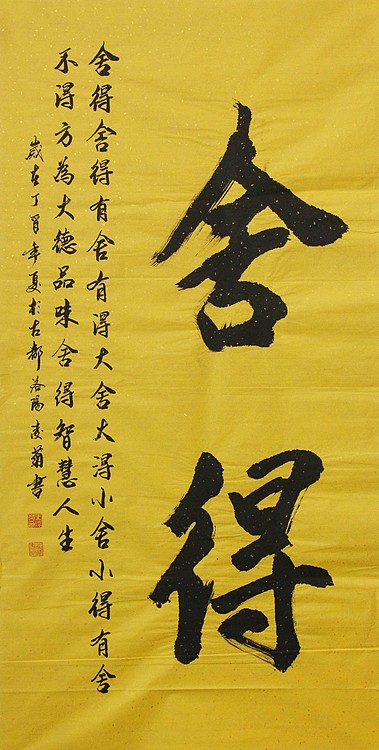 舍得
舍得舍得有舍有得大舍大得小舍小得有舍
不得方為大德品味舍得智慧人生
歲在丁酉年夏於古都洛陽凌菊書